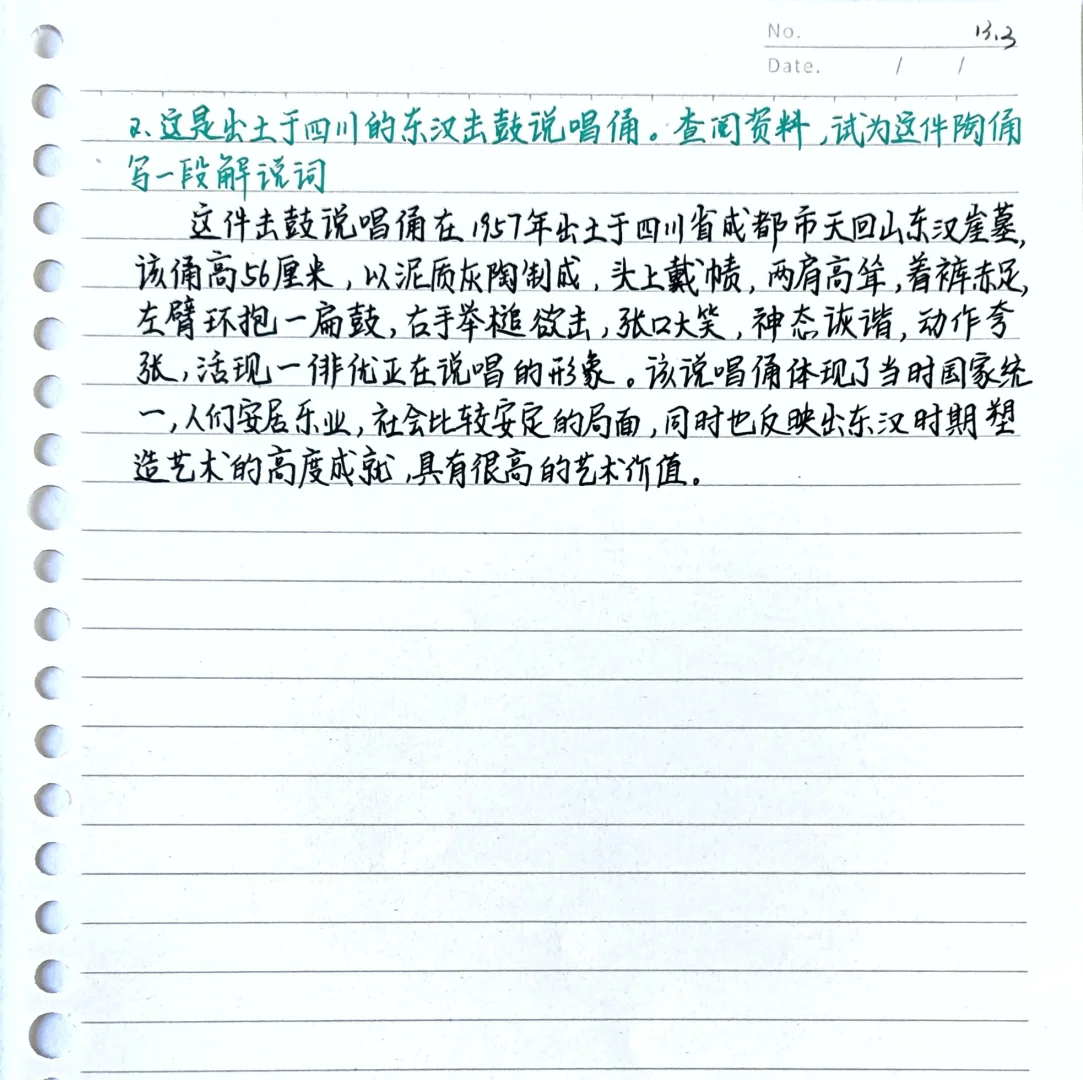 No. 13.3
Date. / /
2、这是出土于四川的东汉击鼓说唱俑。查阅资料,试为这件陶俑
写一段解说词
这件击鼓说唱俑在1957年出土于四川省成都市天回山东汉崖墓,
该俑高56厘米,以泥质灰陶制成,头上戴帻,两肩高耸,着裤赤足,
左臂环抱一扁鼓,右手举槌欲击,张口大笑,神态诙谐,动作夸
张,活现一俳优正在说唱的形象。该说唱俑体现了当时国家统
一,人们安居乐业,社会比较安定的局面,同时也反映出东汉时期塑
造艺术的高度成就,具有很高的艺术价值。